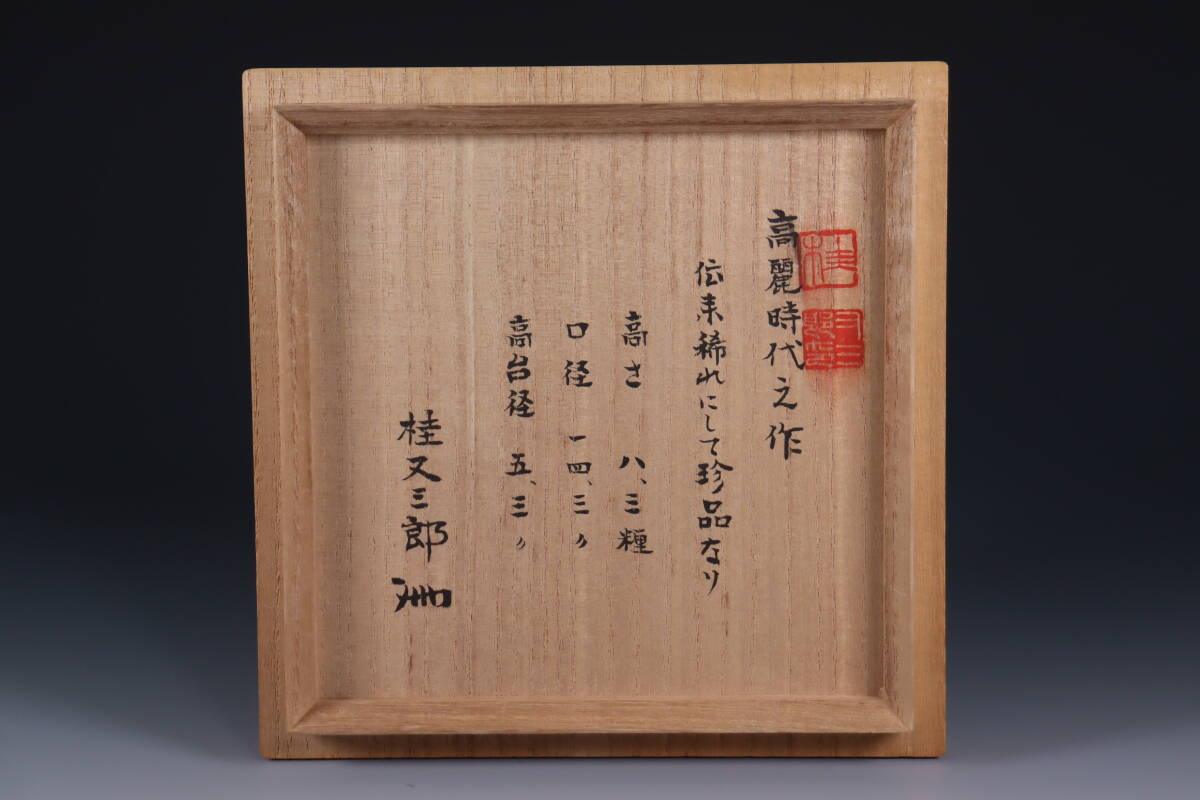 高麗時代之作
伝来稀れにして珍品なり
高さ 八、三糎
口径 一四、三〃
高台径 五、三〃
桂又三郎
桂